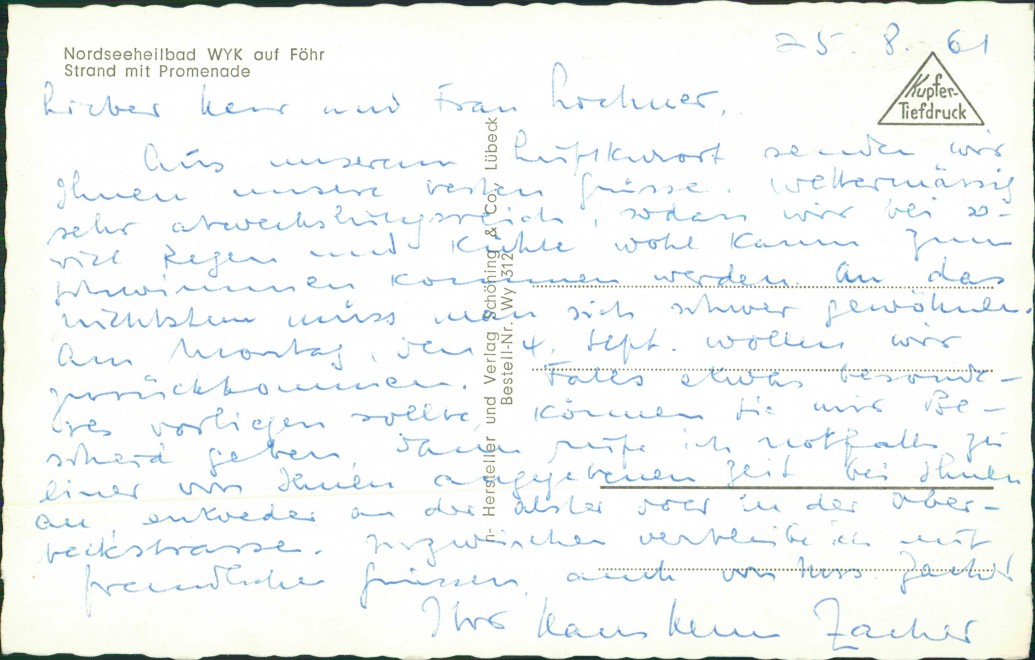 Nordseeheilbad WYK auf Föhr
Strand mit Promenade
25. 8. 61
Kupfer-
Tiefdruck
Lieber Herr und Frau Lochner,
Aus unserem Luftkurort senden wir
Ihnen unsere besten Grüsse. Wettermässig
sehr abwechslungsreich, sodass wir bei so-
viel Regen und Kühle wohl kaum zum
schwimmen kommen werden. An das
nichtstun muss man sich schwer gewöhnen.
Am Montag, den 4. Sept. wollen wir
zurückkommen. Falls etwas besonde-
res vorliegen sollte, können Sie mir Be-
scheid geben, dann rufe ich notfalls zu
einer von Ihnen angegebenen Zeit bei Ihnen
an, entweder an der Alster oder in der
strasse. Inzwischen verbleibe ich mit
freundlichen Grüssen, auch von Zacher
Ihr Hans Zacher
Hersteller und Verlag Schöning & Co., Lübeck
Bestell-Nr. Wy 312